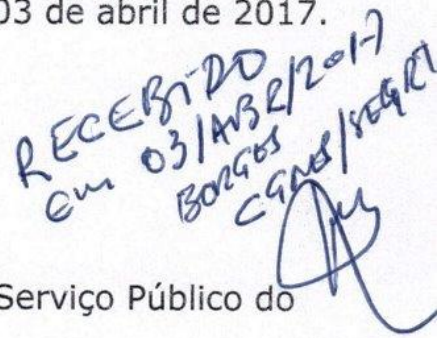 03 de abril de 2017.
RECEBIDO
em 03/ABR/2017
BORGES
Serviço Público do